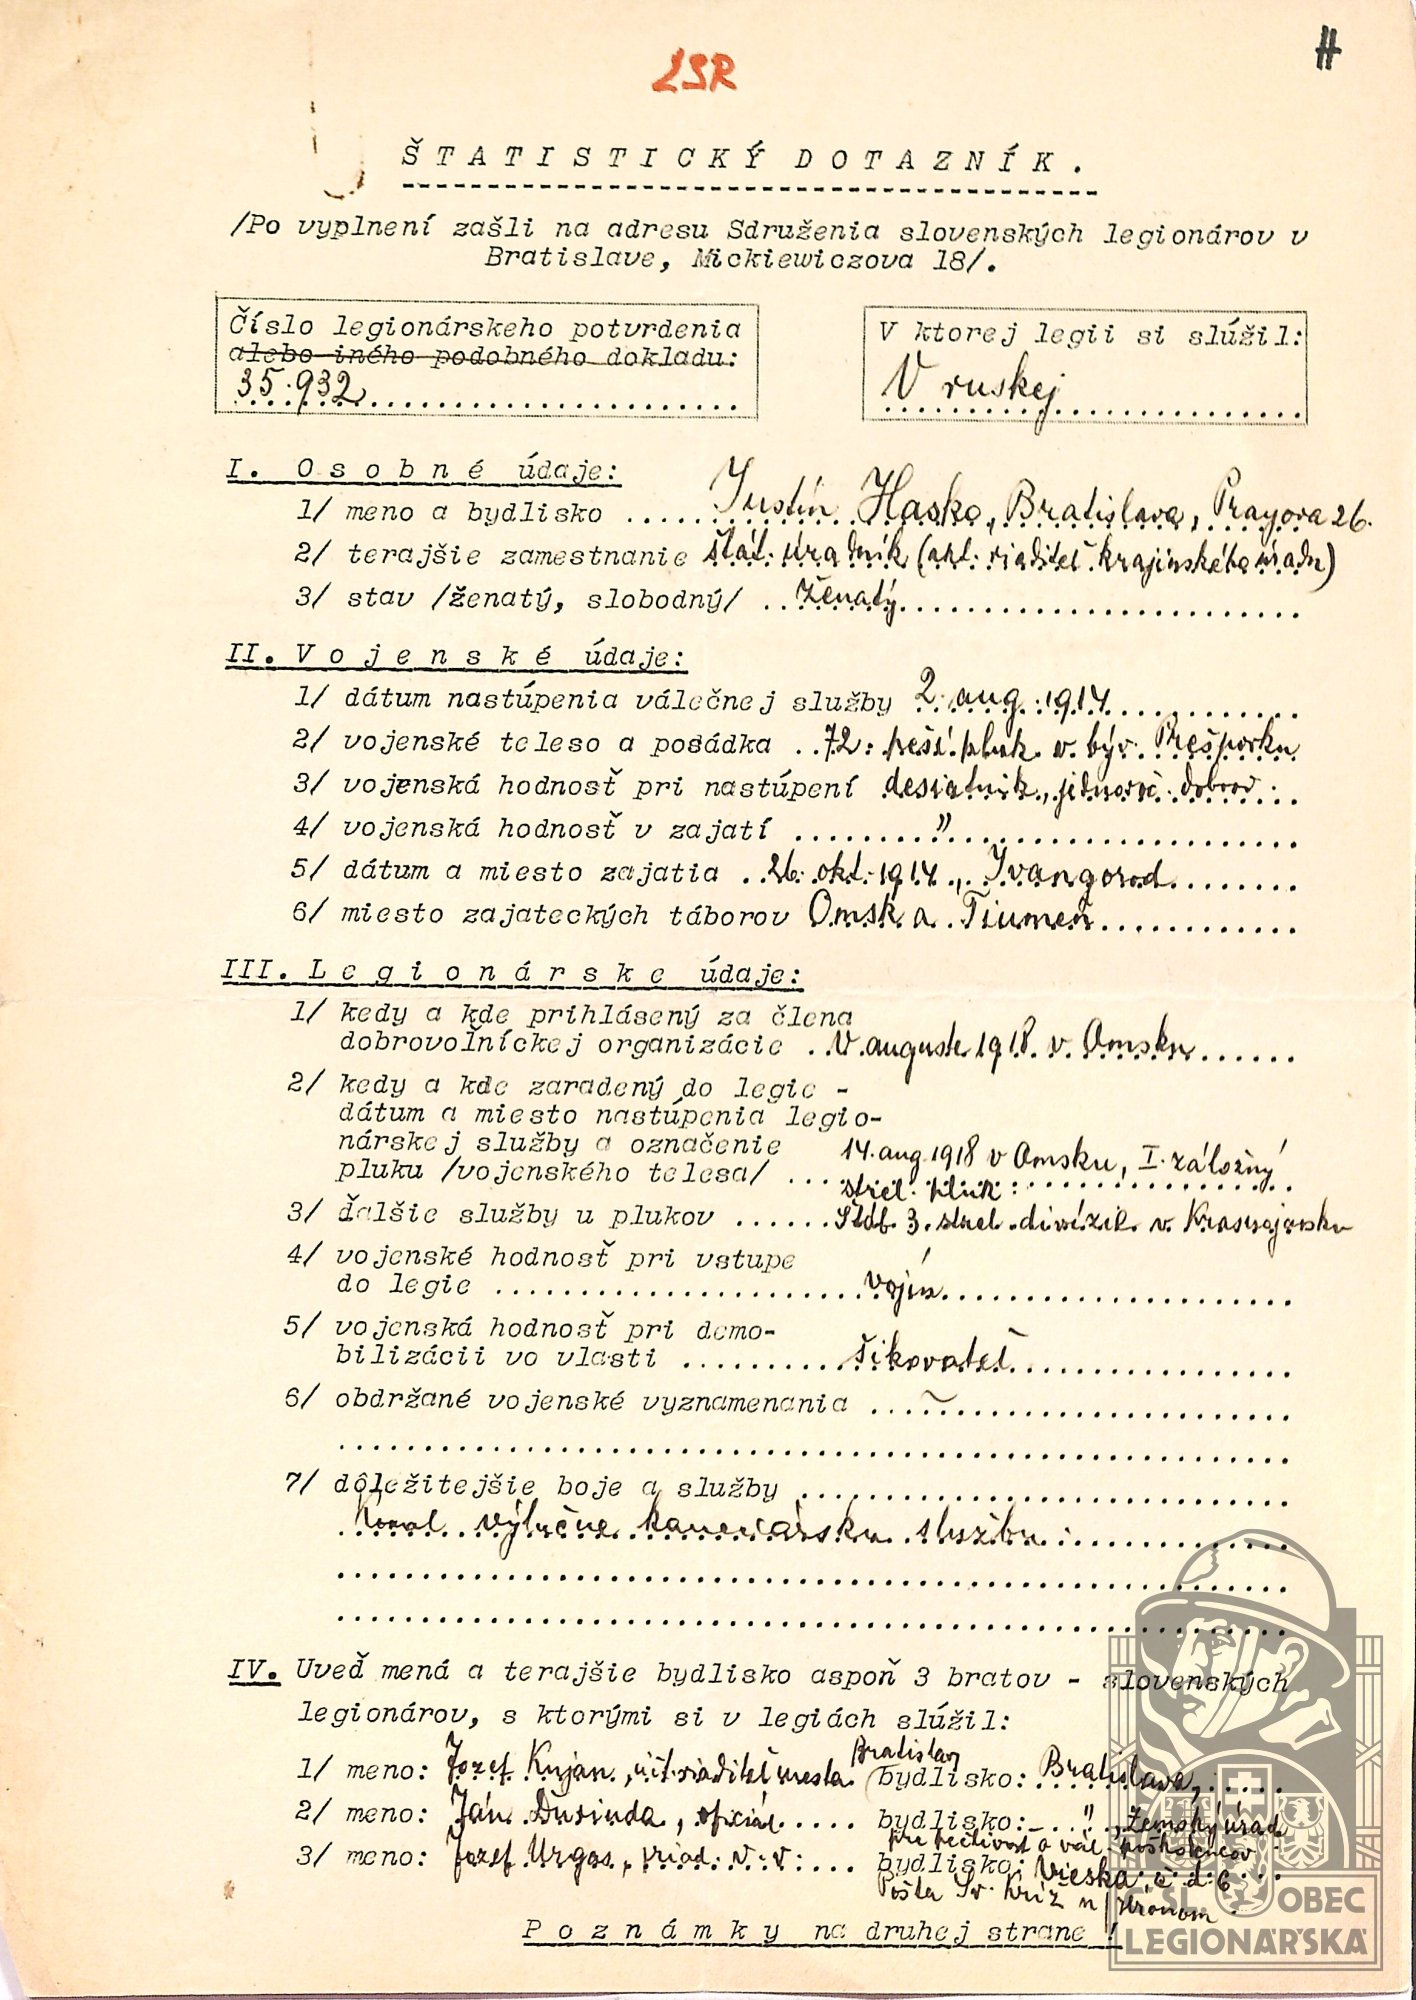 H
LSR
ŠTATISTICKÝ DOTAZNÍK.
/Po vyplnení zašli na adresu Sdruženia slovenských legionárov v
Bratislave, Mickiewiczova 18/.
Číslo legionárskeho potvrdenia
alebo iného podobného dokladu:
35.932
V ktorej legii si slúžil:
V ruskej
I. Osobné údaje:
1/ meno a bydlisko Justín Hasko, Bratislava, Prayova 26.
2/ terajšie zamestnanie štát. úradník (akt. riaditeľ krajinského úradu)
3/ stav /ženatý, slobodný/ ženatý
II. Vojenské údaje:
1/ dátum nastúpenia válečnej služby 2. aug. 1914
2/ vojenské teleso a posádka 72. peší pluk v býv. Prešporku
3/ vojenská hodnosť pri nastúpení desiatnik, jednoroč. dobrov.
4/ vojenská hodnosť v zajatí "
5/ dátum a miesto zajatia 26. okt. 1914, Ivangorod
6/ miesto zajateckých táborov Omsk a Tiumeň
III. Legionárske údaje:
1/ kedy a kde prihlásený za člena
dobrovoľníckej organizácie V auguste 1918 v Omsku
2/ kedy a kde zaradený do legie -
dátum a miesto nastúpenia legio-
nárskej služby a označenie
pluku /vojenského telesa/ 14. aug. 1918 v Omsku, I. záložný
strel. pluk.
3/ ďalšie služby u plukov Štáb 3. strel. divízie v Krasnojarsku
4/ vojenské hodnosť pri vstupe
do legie vojín
5/ vojenská hodnosť pri demo-
bilizácii vo vlasti šikovateľ
6/ obdržané vojenské vyznamenania ~
7/ dôležitejšie boje a služby
Konal výlučne kanceliársku službu.
IV. Uveď mená a terajšie bydlisko aspoň 3 bratov - slovenských
legionárov, s ktorými si v legiách slúžil:
Bratislavy
1/ meno: Jozef Kujan, riaditeľ mesta bydlisko: Bratislava,
2/ meno: Ján Ďurinda, oficiál bydlisko: ", Zemský úrad
pre pečlivosť o vál. poškodencov
3/ meno: Jozef Urgas, riad. v. v. bydlisko: Vieska, č. d. 6
Pošta Sv. Kríž n/Hronom.
Poznámky na druhej strane!
ČSL. OBEC
LEGIONÁŘSKÁ